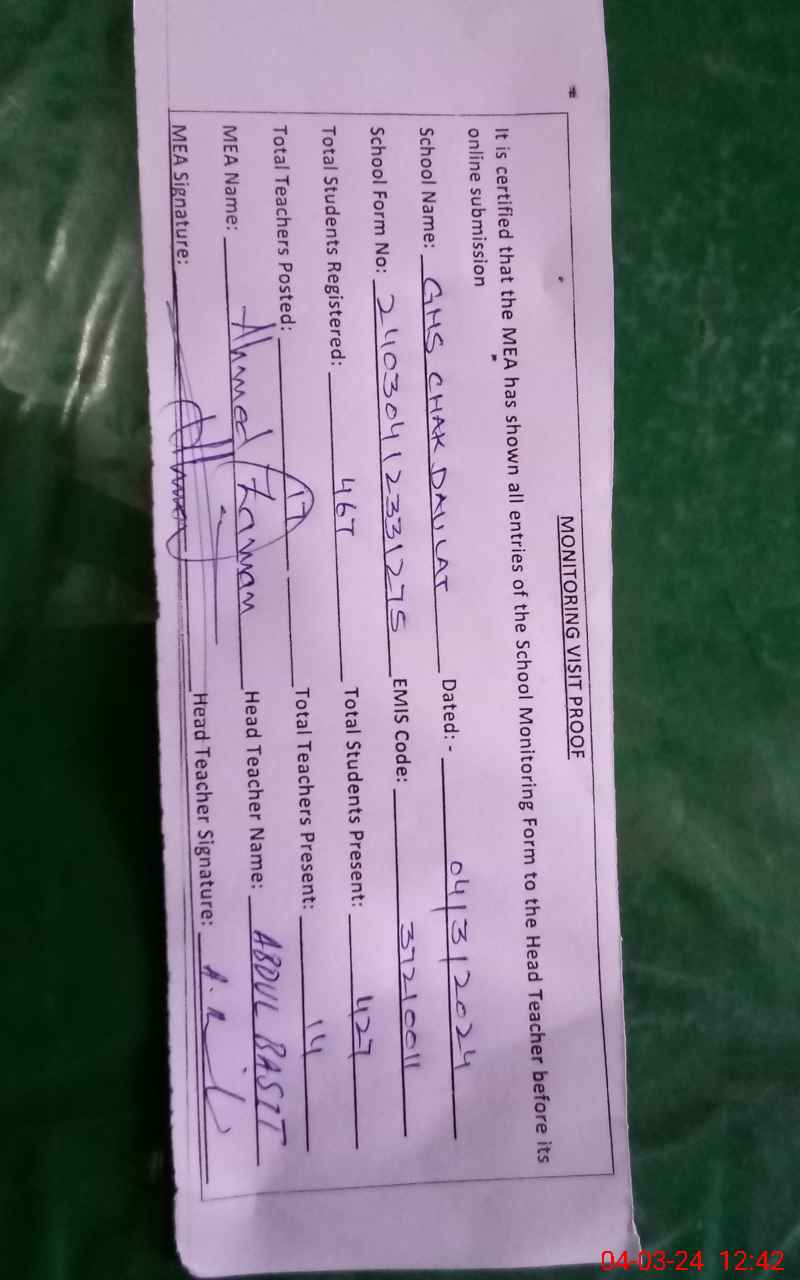 MONITORING VISIT PROOF
It is certified that the MEA has shown all entries of the School Monitoring Form to the Head Teacher before its
online submission
School Name: GHS CHAK DAULAT Dated: - 04/3/2024
School Form No: 24030412331275 EMIS Code: 37210011
Total Students Registered: 467 Total Students Present: 427
Total Teachers Posted: 17 Total Teachers Present: 14
MEA Name: Ahmed Zaman Head Teacher Name: ABDUL BASIT
MEA Signature: Head Teacher Signature:
04-03-24 12:42